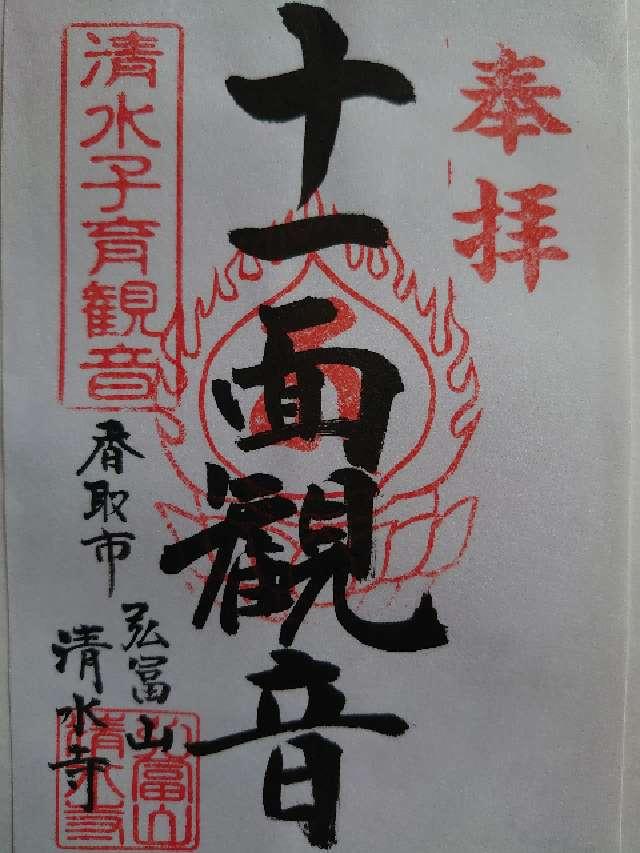 奉拝
十一面観音
清水子育観音
香取市
弘富山
清水寺
弘富山
清水寺